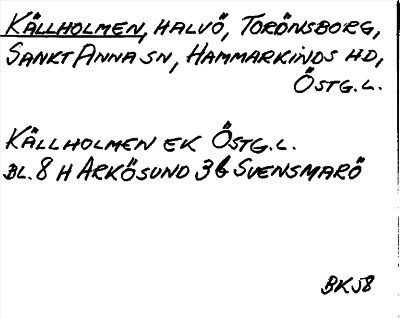 KÄLLHOLMEN, HALVÖ, TORÖNSBORG,
SANKT ANNA SN, HAMMARKINDS HD,
ÖSTG. L.
KÄLLHOLMEN EK ÖSTG. L.
BL. 8 H ARKÖSUND 3 b SVENSMARÖ
BK58